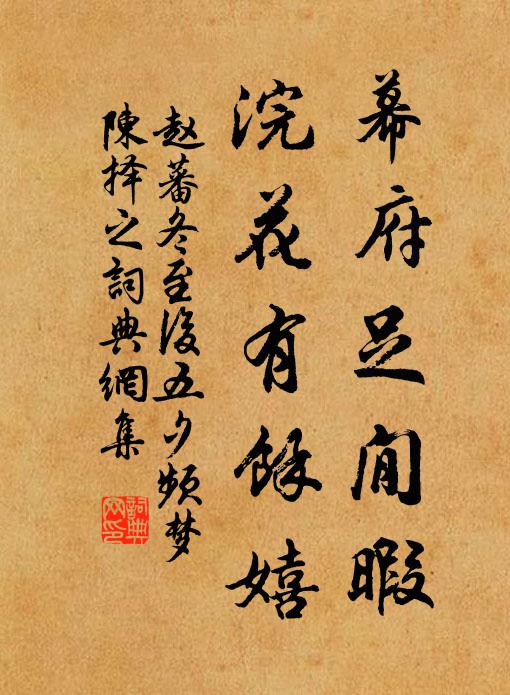 幕府足閒暇
浣花有餘嬉
赵蕃冬至後五夕频梦
陳择之詞典網集
詞典網印